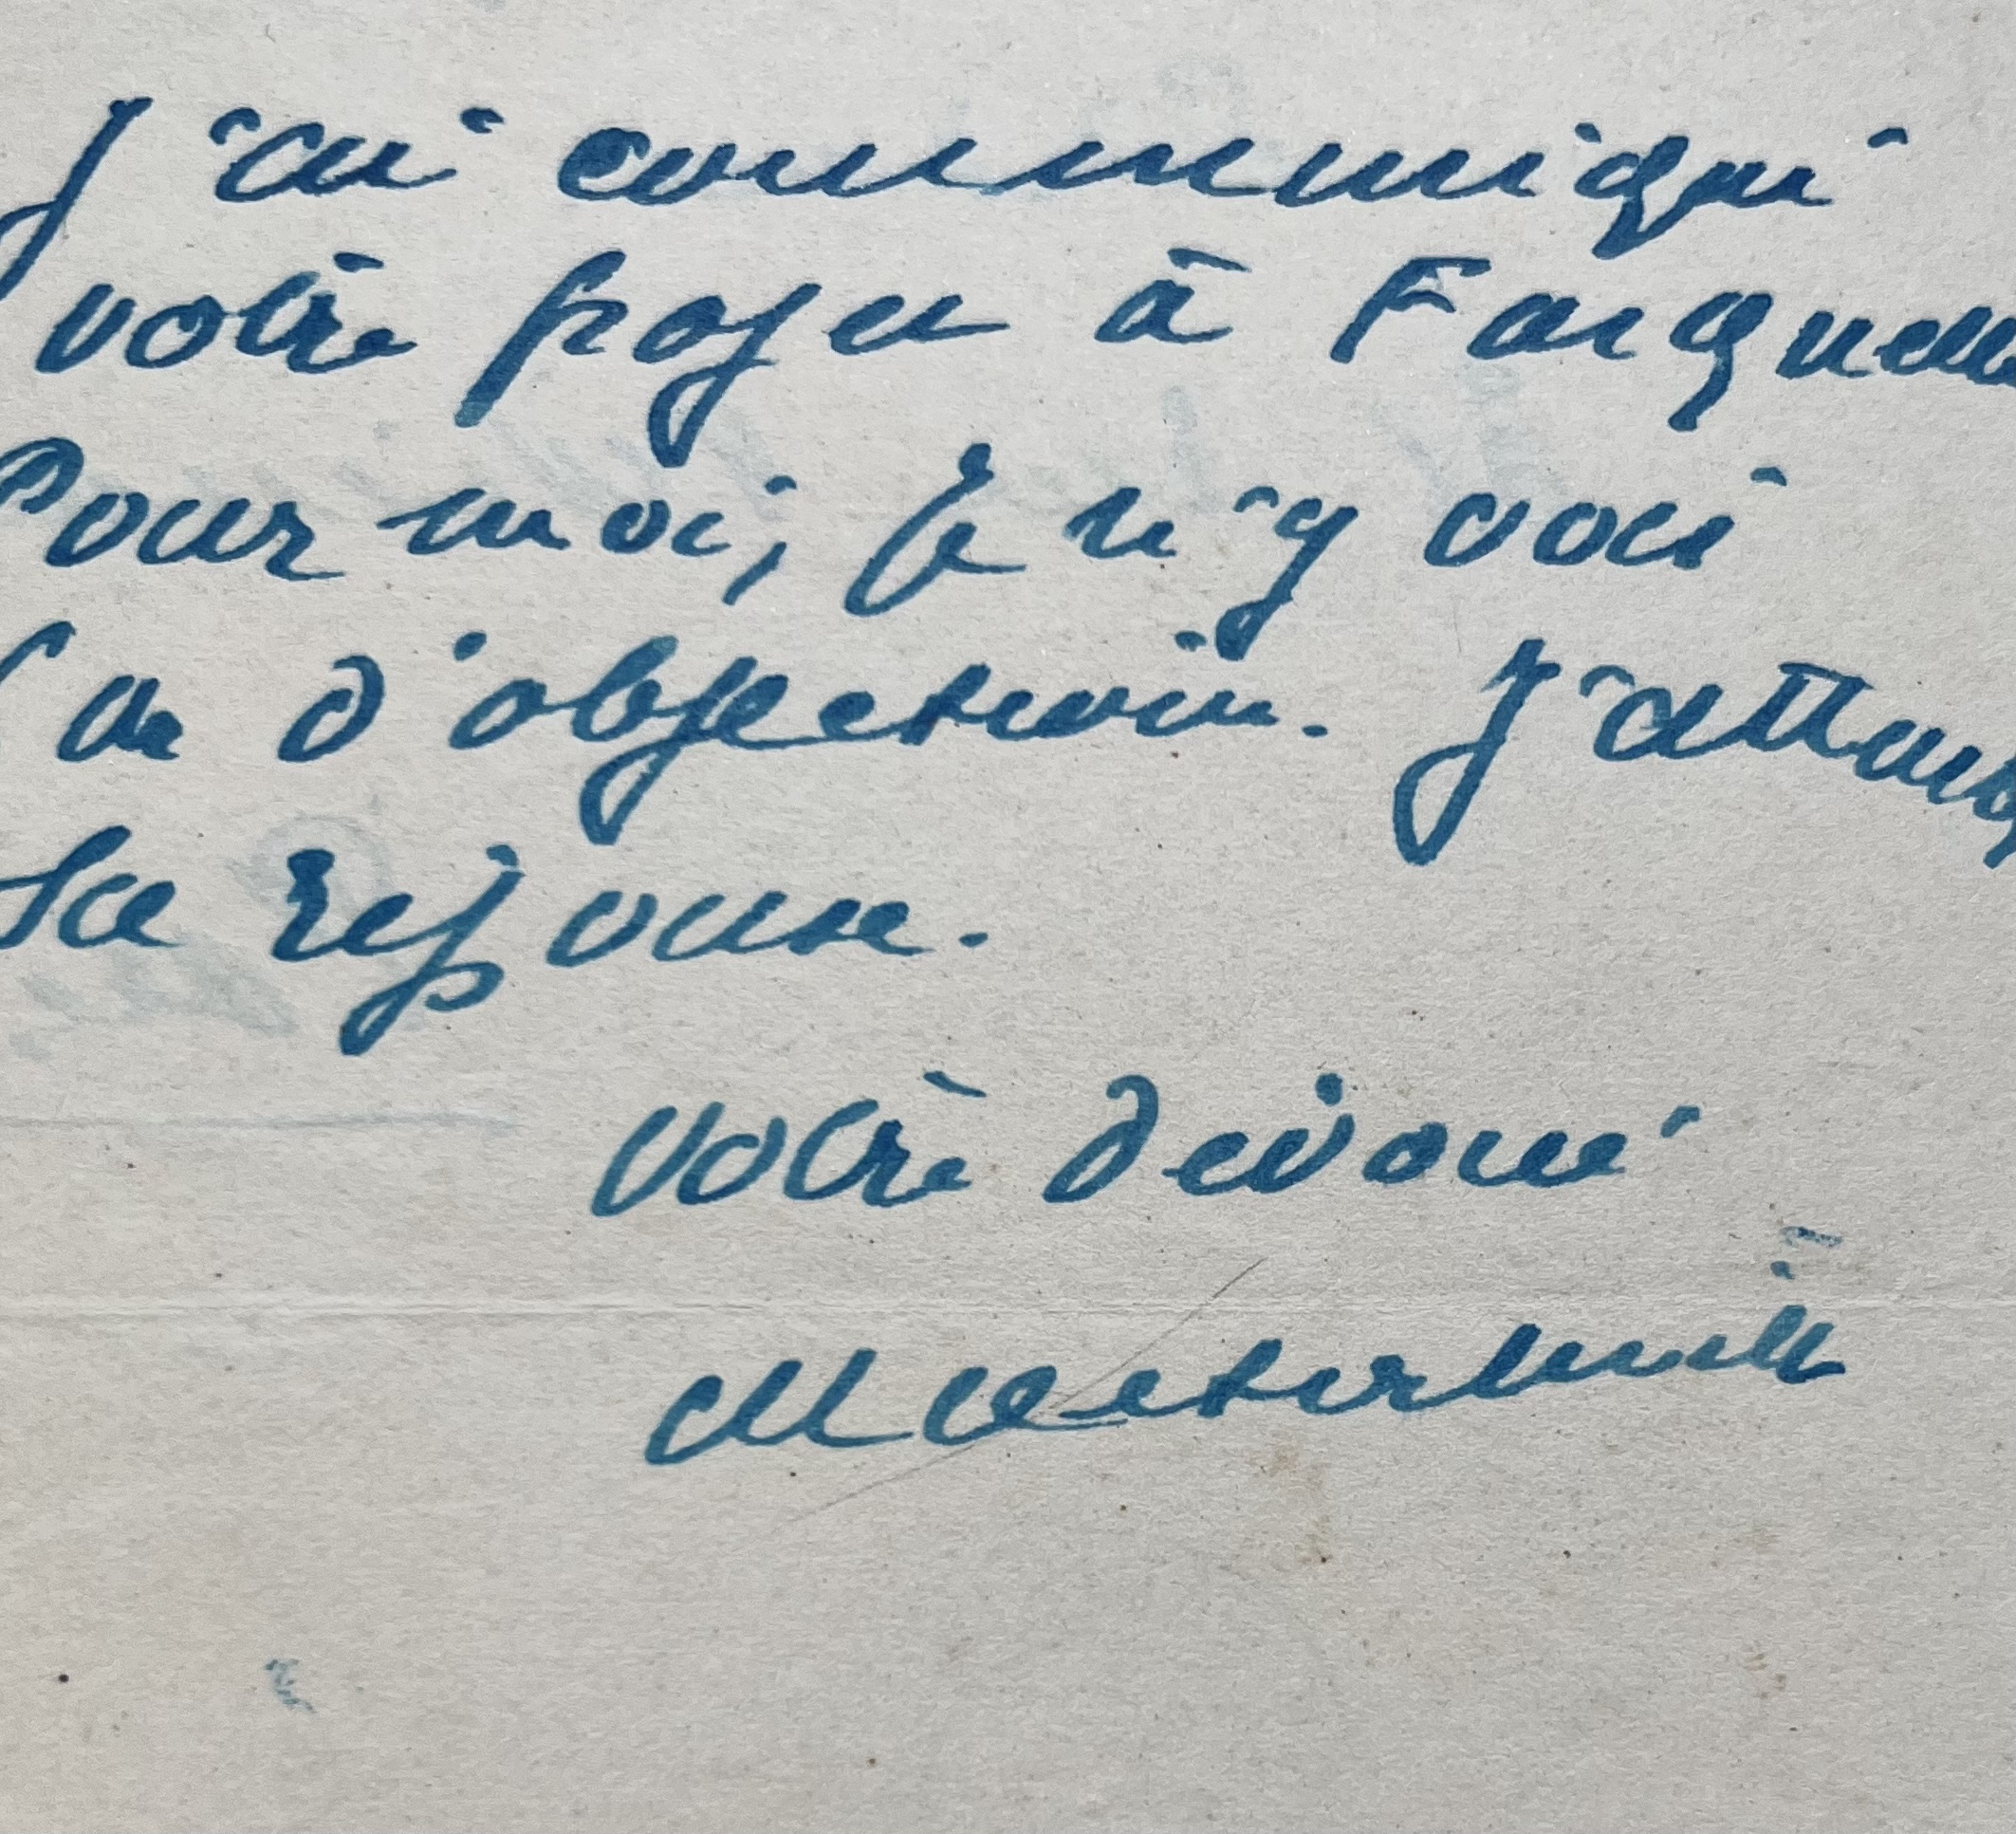 J'ai communiqué
votre projet à Fasquelle
Pour moi, je n'y vois
pas d'objection. J'attends
sa réponse.
Votre dévoué
Maeterlinck